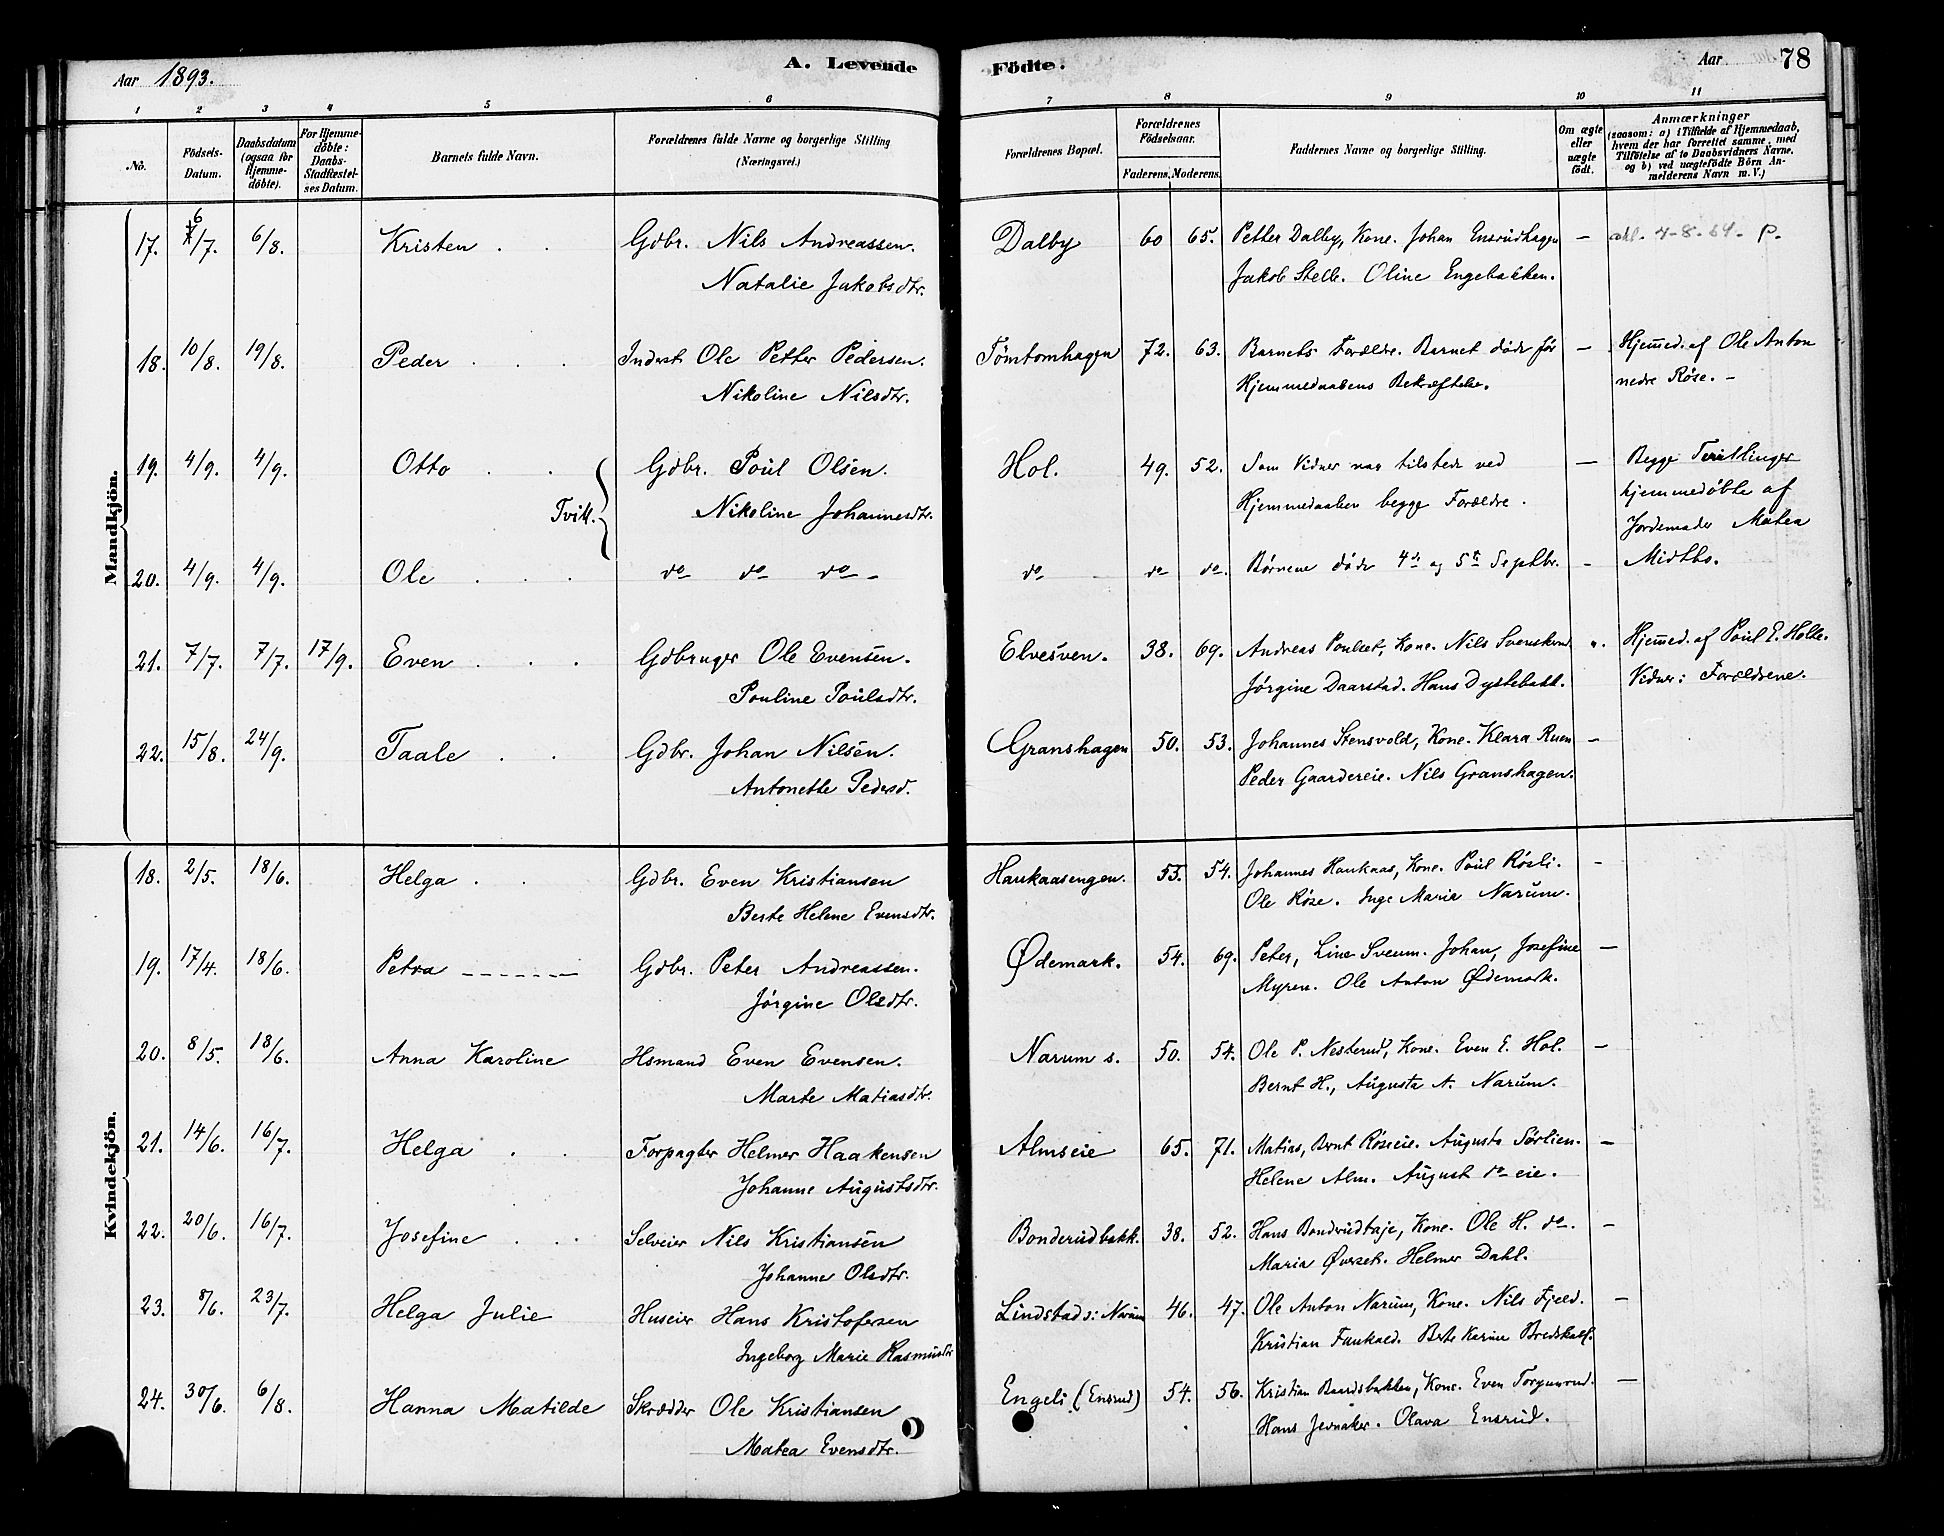 Aar 1893. A. Levende Födte. Aar 78
1 2 3 4 5 6 7 8 9 10 11
No. Födsels-Datum. Daabsdatum (ogsaa for Hjemme-döbte). For Hjemme-döbte: Daabs-Stadfæstel-ses Datum. Barnets fulde Navn. Forældrenes fulde Navne og borgerlige Stilling (Næringsvei.) Forældrenes Bopæl. Forældrenes Födselsaar. Faderens. Moderens. Faddernes Navne og borgerlige Stilling. Om ægte eller uægte födt. Anmærkninger (saasom: a) i Tilfælde af Hjemmedaab, hvem der har forrettet samme, med Tilföielse af to Daabsvidners Navne, og b) ved uægtefödte Börn An-melderens Navn m. V.)
Mandkjön.
17. 6/7. 6/8. Kristen Gdbr. Nils Andreassen. Dalby 60 65. Petter Dalby, Kone. Johan Ensrudhagen — 4-8.64. P.
Natalie Jakobsdtr. Jakob Stelle. Oline Engebakken.
18. 10/8. 19/8. Peder Inderst Ole Petter Pedersen. Tømtomhagen 72. 63. Barnets Forældre. Barnet døde før — Hjemmed. af Ole Anton
Nikoline Nilsdtr. Hjemmedaabens Bekræftelse. nedre Røse. —
19. 4/9. 4/9. Otto Gdbr. Poul Olsen. Hol. 49. 52. Som Vidner var tilstede ved — Begge Tvillinger
Tvill. Nikoline Johannesdtr. Hjemmedaaben begge Forældre. hjemmedøbte af
Jordemoder Matea
20. 4/9. 4/9. Ole do do do - do do do. Børnene døde 4de og 5te Septbr. - Midtbo.
21. 7/7. 7/7. 17/9. Even Gdbruger Ole Evensen. Elvesven. 38. 69. Andreas Poulset, Kone. Nils ". Hjemmed. af Poul E. Holle.
Pouline Poulsdtr. Jørgine Daarstad. Hans Dystebakk. Vidner: Forældrene.
22. 15/8. 24/9. Taale Gdbr. Johan Nilsen. Granshagen 50. 53. Johannes Stensvold, Kone. Klara Ruen —
Antonette Pedersd. Peder Gaardereie. Nils Granshagen.
Kvindekjön.
18. 2/5. 18/6. Helga Gdbr. Even Kristiansen Haukaasengen. 55. 54. Johannes Haukaas, Kone. Poul Røsli. —
Berte Helene Evensdtr. Ole Røse. Inge Maria Narum.
19. 17/4. 18/6. Petra Gdbr. Peter Andreassen. Ødemark. 54. 69. Peter, Line Sveum. Johan, Josefine —
Jørgine Olsdtr. Myren. Ole Anton Ødemark.
20. 8/5. 18/6. Anna Karoline Hsmand Even Evensen. Narum s. 50. 54. Ole P. Nesterud, Kone. Even E. Hol. —
Marte Matiasdtr. Bernt H., Augusta A. Narum.
21. 14/6. 16/7. Helga Forpagter Helmer Haakensen Almseie 65. 71. Matias, Bernt Røseeie. Augusta Sørlien. —
Johanne Augustsdtr. Helene Alm. August do eie.
22. 20/6. 16/7. Josefine Selveier Nils Kristiansen Bonderudbakk. 38. 52. Hans Bondrudtaje, Kone. Ole H. do. —
Johanne Olsdtr. Maria Øverset. Helmer Dahl.
23. 8/6. 23/7. Helga Julie Huseier Hans Kristofersen Lindstad s: Narum 46. 47. Ole Anton Narum, Kone. Nils Fjeld. —
Ingeborg Marie Rasmusdtr Kristian Faukald. Berte Karine
24. 30/6. 6/8. Hanna Matilde Skrædder Ole Kristiansen Engeli (Ensrud) 54. 56. Kristian Baardsbakken, Kone. Even Torgunrud. —
Matea Evensdtr. Hans Jevnaker. Olava Ensrud.